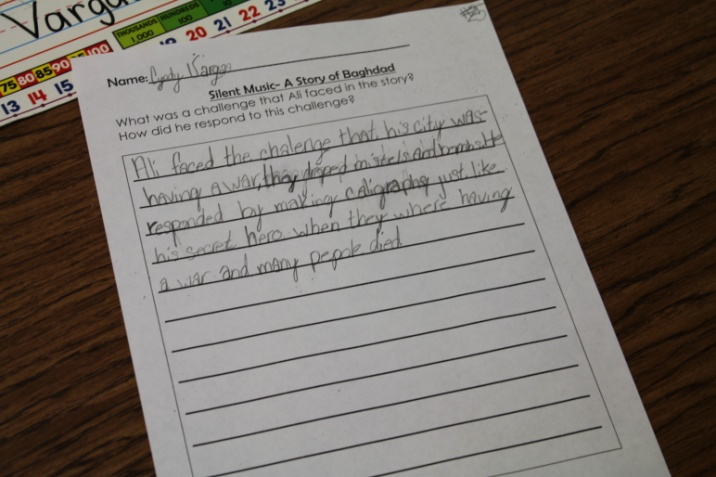 Varga
THOUSANDS HUNDREDS
1,000 100
75 80 85 90 100
13 14 15 19 20 21 22 23
Name: Vargas
Silent Music- A Story of Baghdad
What was a challenge that Ali faced in the story?
How did he respond to this challenge?
Ali faced the chalenge that his city was
having a war, they droped and
responded by making just like
his secret hero when they where having
a war and many pepole died